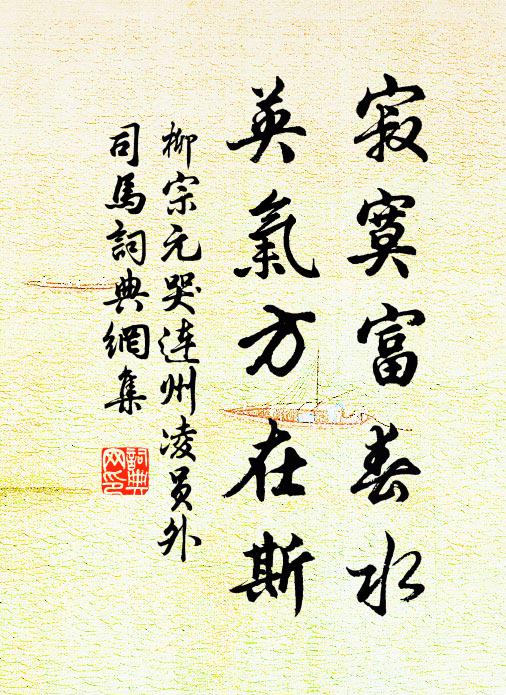 寂寞富春水
英氣方在斯
柳宗元哭連州凌員外
司馬詞典網集
詞典網印